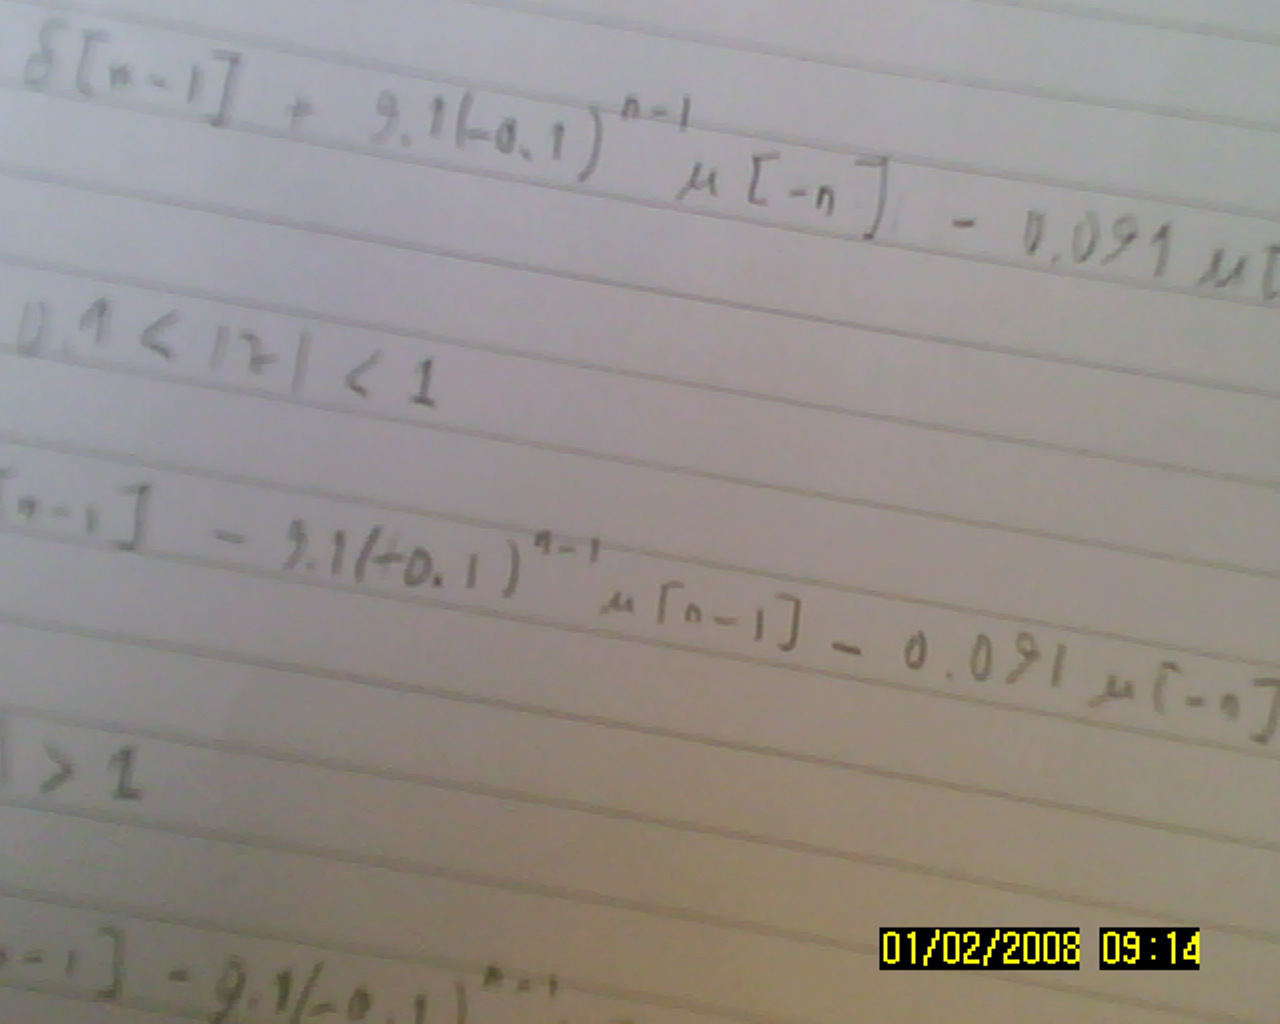 δ[n-1] + 9.1(-0.1)^{n-1} μ[-n] - 0.091 μ[
0.1 < |z| < 1
[n-1] - 9.1(-0.1)^{n-1} μ[n-1] - 0.091 μ[-n]
| > 1
n-1] - 9.1(-0.1)^{n-1}
01/02/2008 09:14